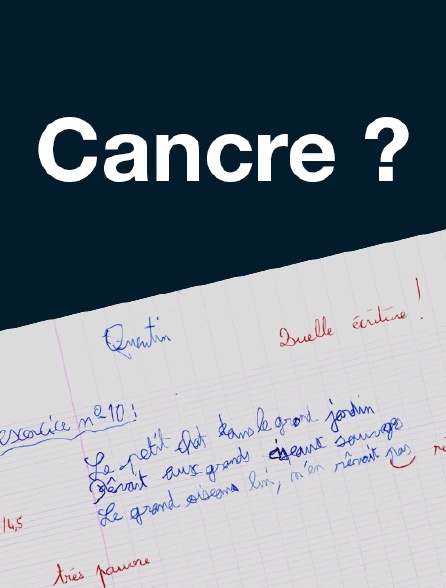 Cancre ?
Quentin
Quelle écriture !
exercice n°10 !
Le petit chat dans le grand jardin
Rêvait aux grands oiseaux sauvages
Le grand oiseau lui, n'en rêvait pas
14,5
très pauvre